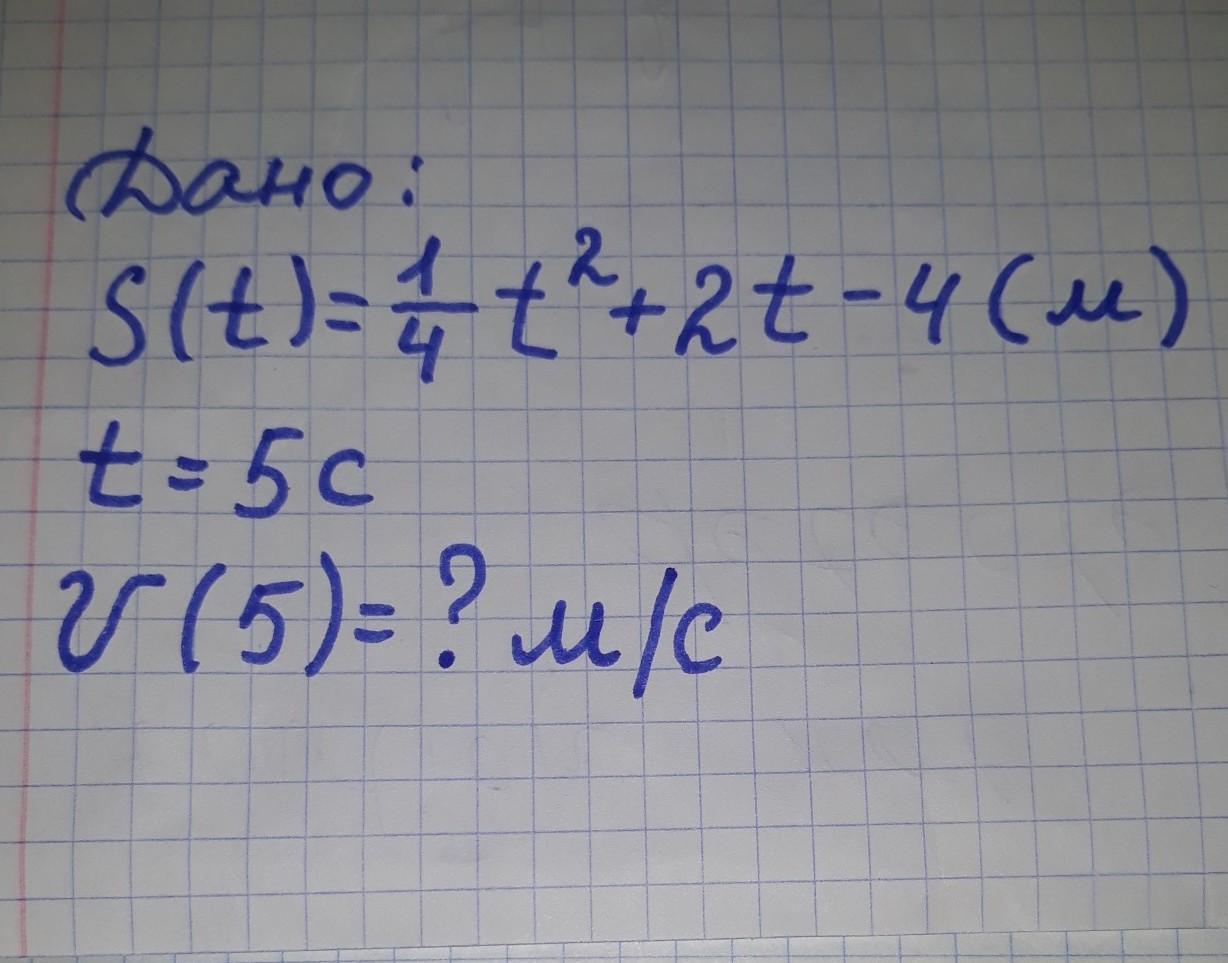 Дано:
S(t)=\frac{1}{4}t²+2t-4(м)
t=5c
v(5)=? м/с